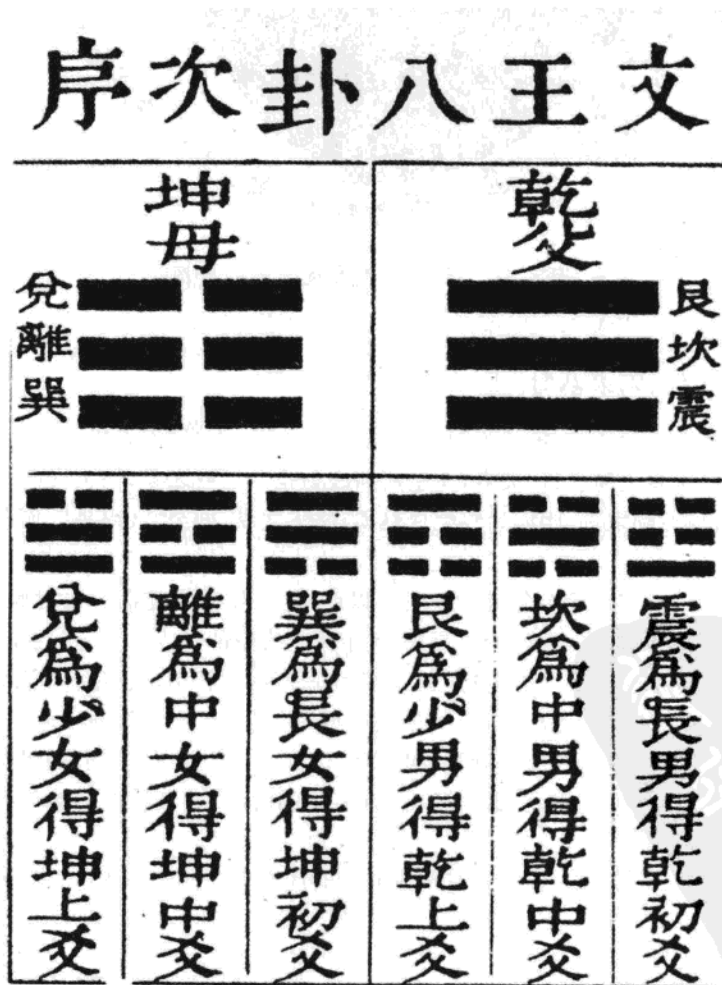 文王八卦次序
乾父
艮
坎
震
坤母
兌
離
巽
震爲長男得乾初爻
坎爲中男得乾中爻
艮爲少男得乾上爻
巽爲長女得坤初爻
離爲中女得坤中爻
兌爲少女得坤上爻